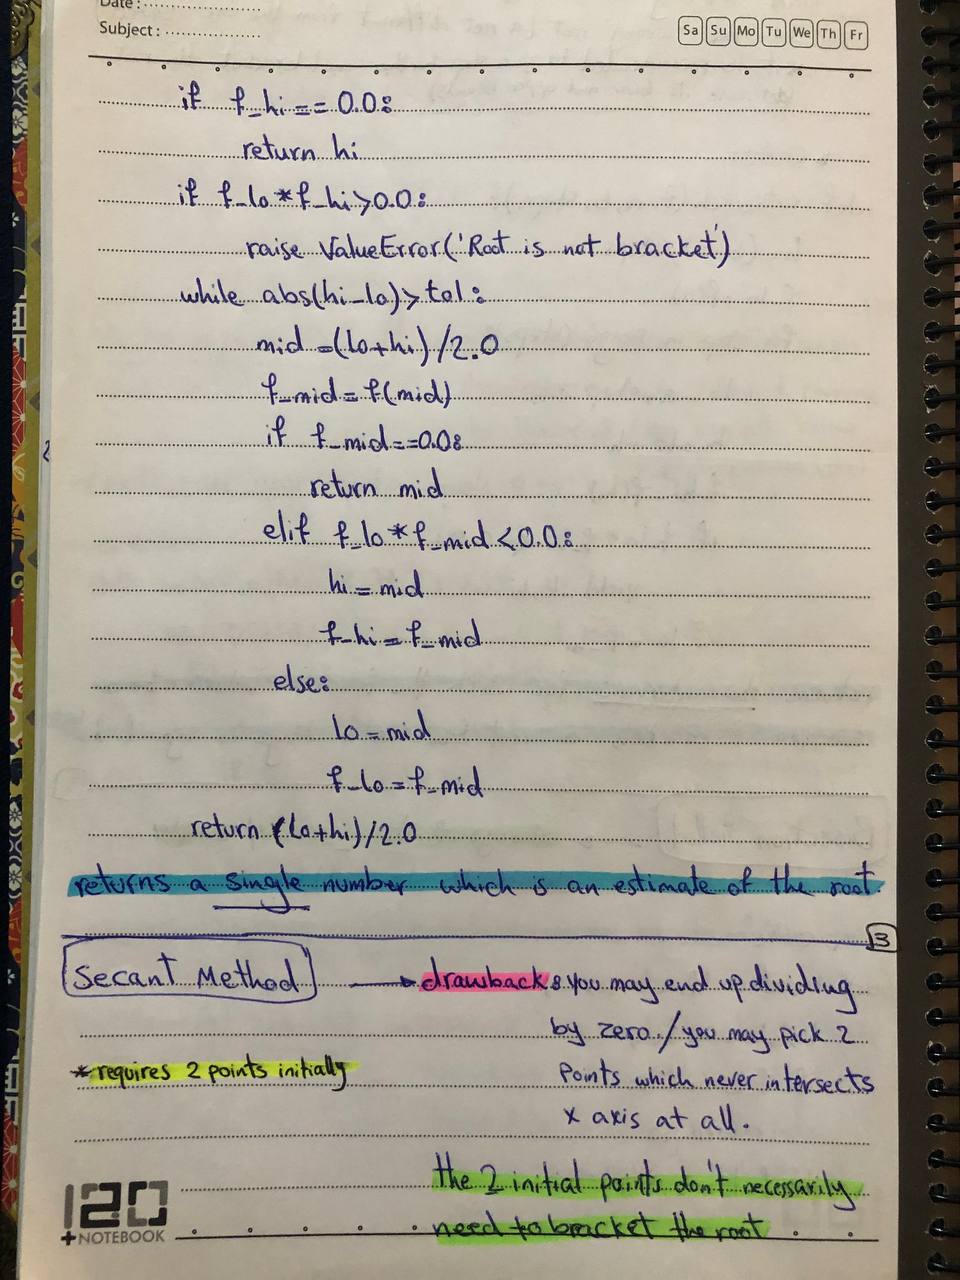 Date :
Subject :
Sa Su Mo Tu We Th Fr
if f_hi == 0.0:
return hi
if f_lo*f_hi>0.0:
raise ValueError('Root is not bracket')
while abs(hi-lo)>tol:
mid=(lo+hi)/2.0
f_mid=f(mid)
if f_mid==0.0:
return mid
elif f_lo*f_mid<0.0:
hi=mid
f_hi=f_mid
else:
lo=mid
f_lo=f_mid
return (lo+hi)/2.0
returns a single number which is an estimate of the root
3
Secant Method → drawback: you may end up dividing
by zero / you may pick 2
*requires 2 points initially
Points which never intersects
x axis at all.
the 2 initial points don't necessarily
need to bracket the root
120
+NOTEBOOK